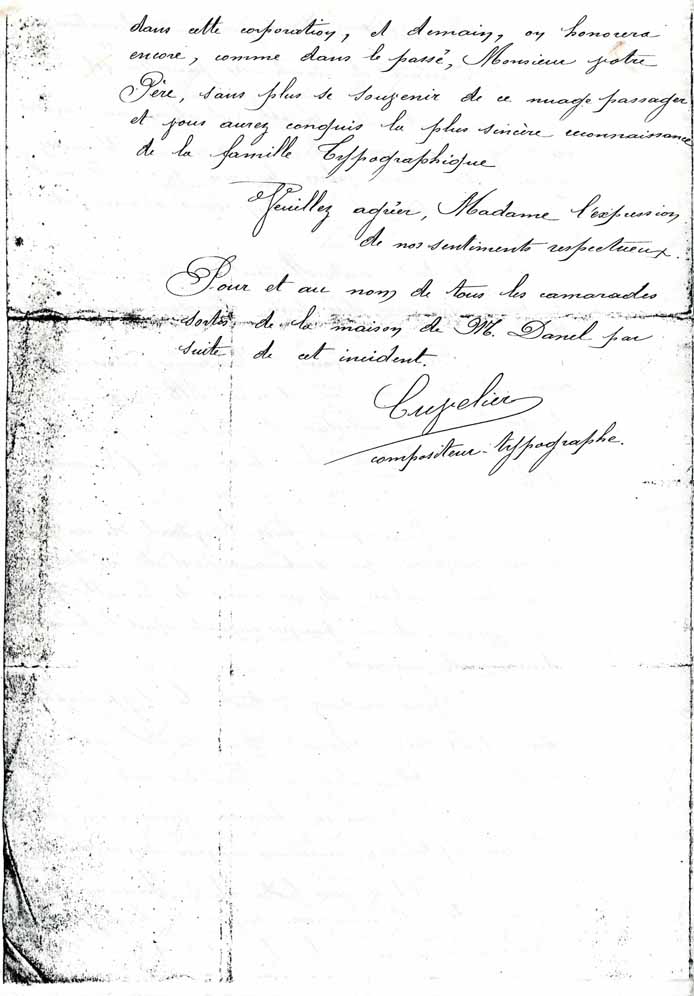 dans cette corporation, et demain, on honorera
encore, comme dans le passé, Monsieur votre
Père, sans plus se souvenir de ce nuage passager
et vous aurez conquis la plus sincère reconnaissance
de la famille Typographique
Veuillez agréer, Madame l'expression
de nos sentiments respectueux.
Pour et au nom de tous les camarades
sortis de la maison de M. Danel par
suite de cet incident.
Cuvelier
compositeur-typographe.